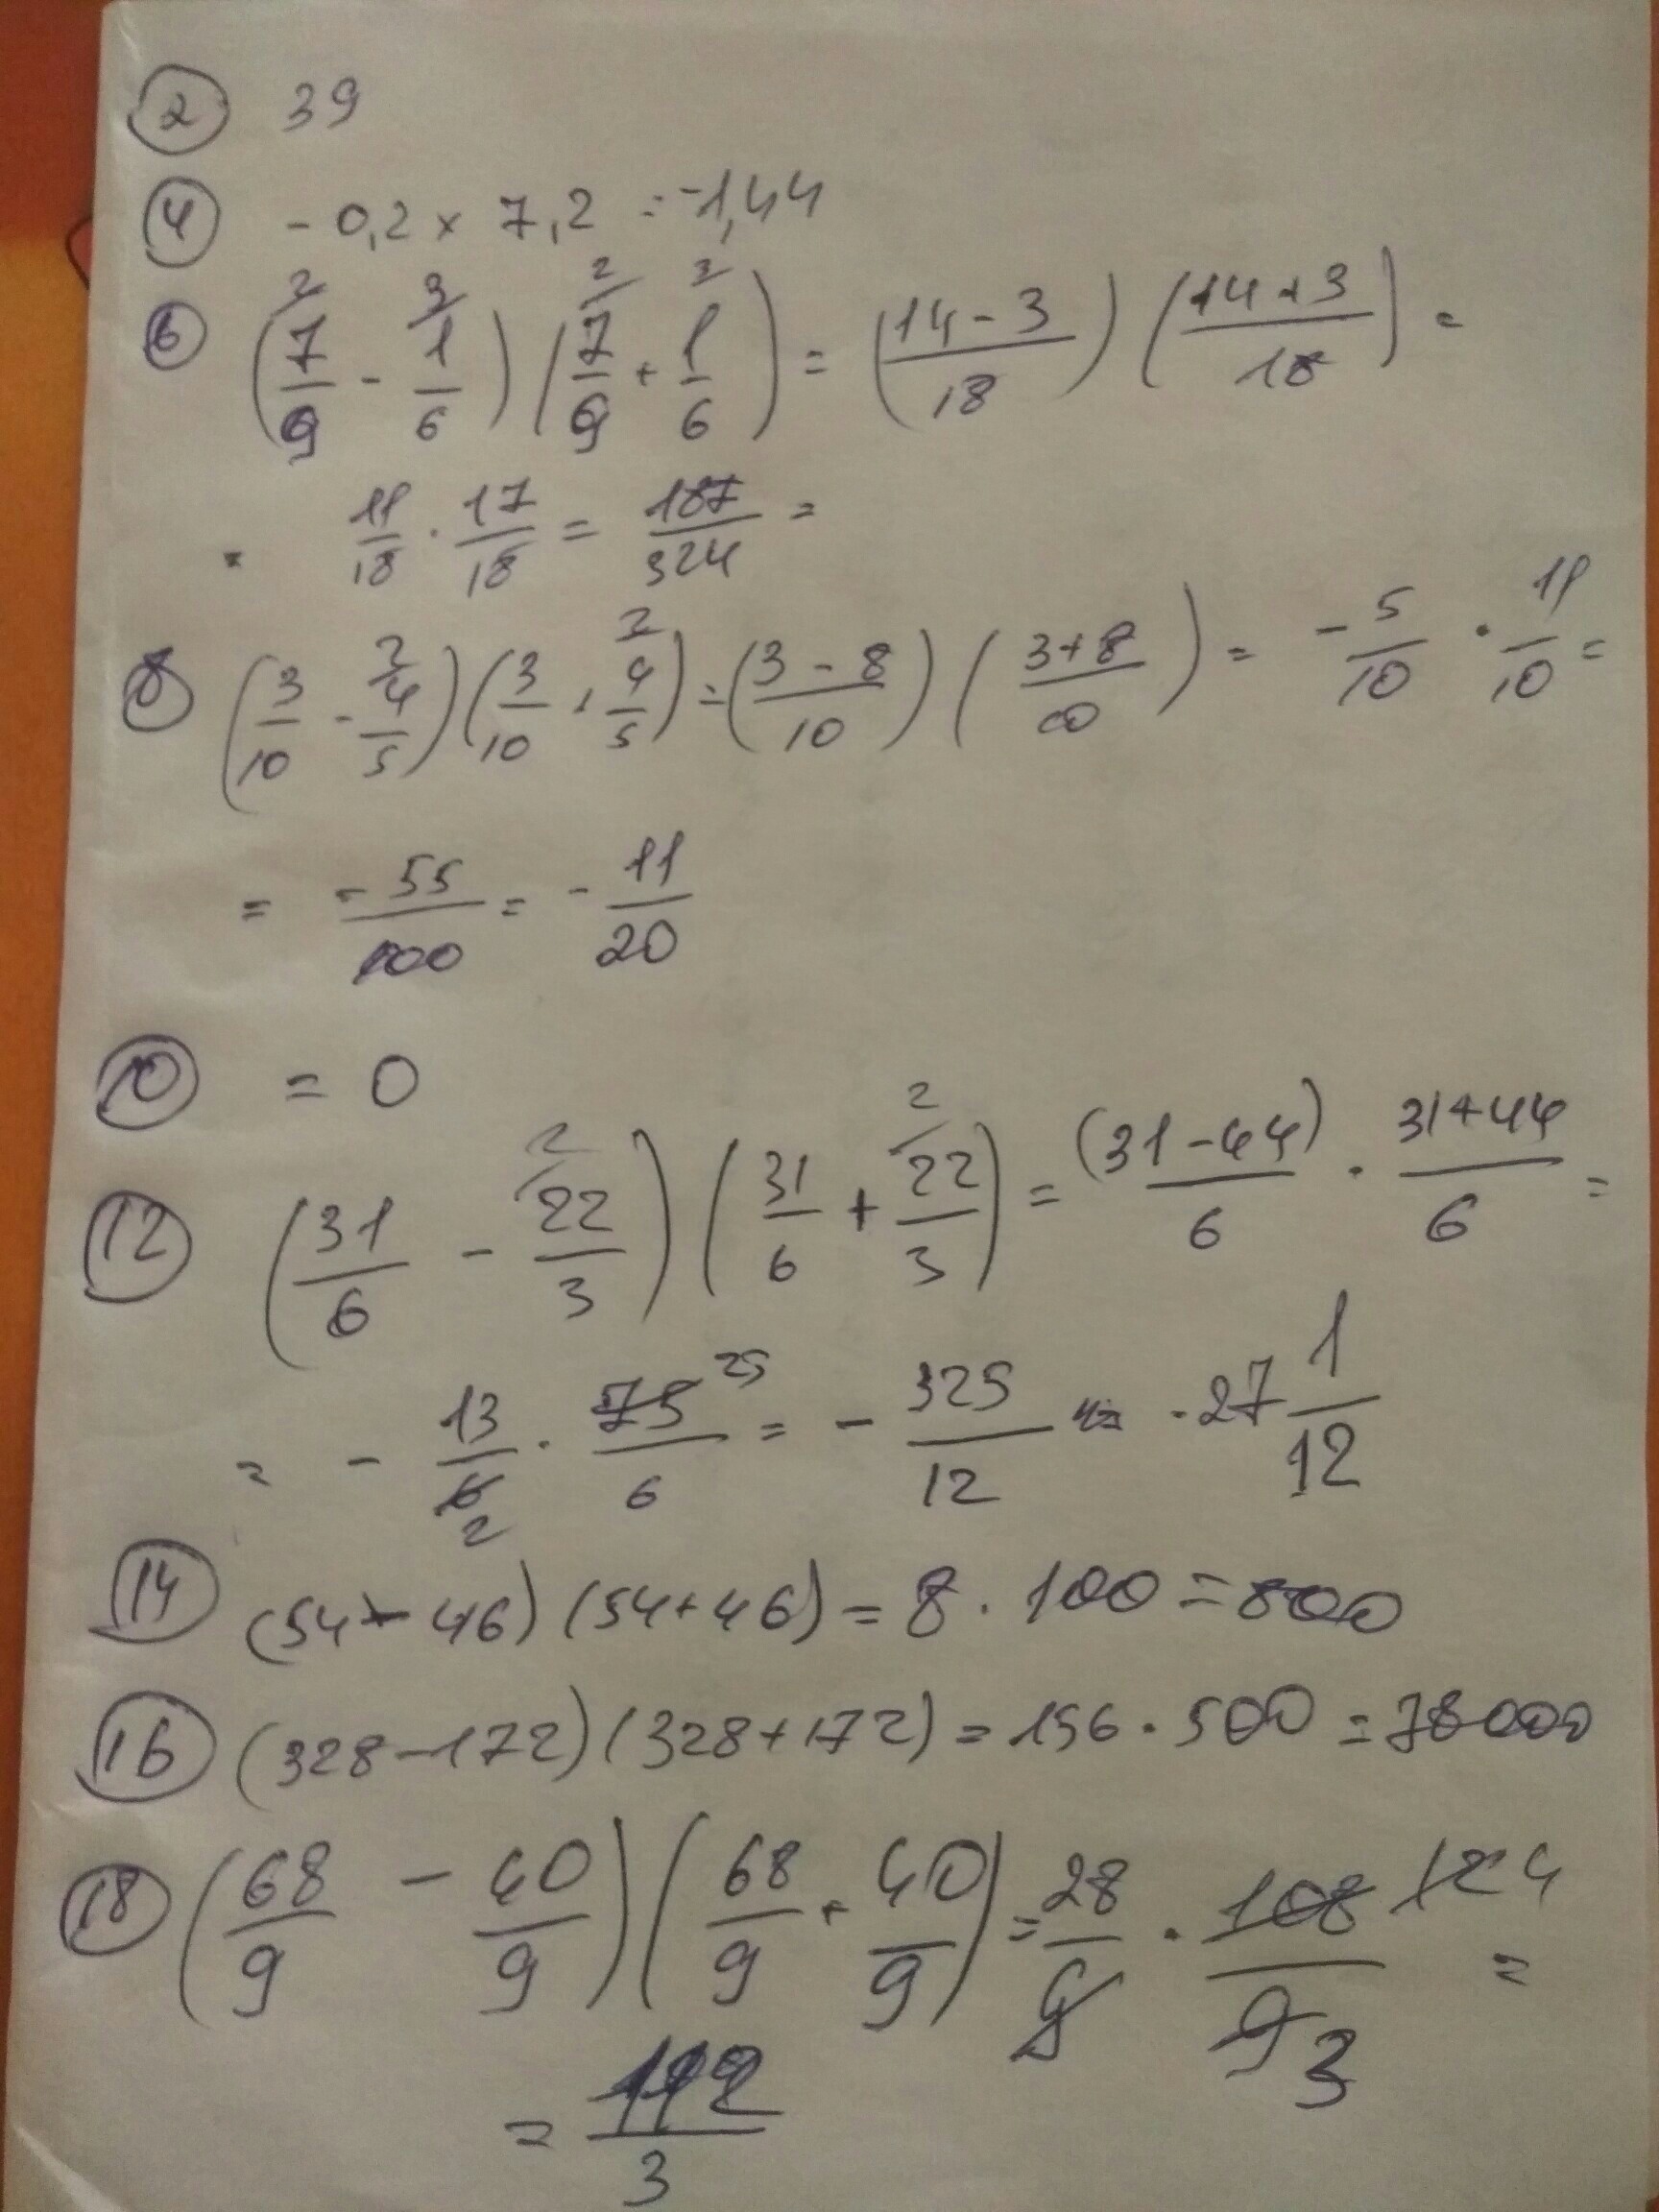 2 39
4 - 0,2 × 7,2 = -1,44
6 (7/9 - 1/6) (7/9 + 1/6) = (14 - 3 / 18) (14 + 3 / 18) =
= 11/18 · 17/18 = 187/324 =
8 (3/10 - 4/5) (3/10 + 4/5) = (3 - 8 / 10) (3 + 8 / 10) = - 5/10 · 11/10 =
= - 55/100 = - 11/20
10 = 0
12 (31/6 - 22/3) (31/6 + 22/3) = (31 - 44)/6 · 31 + 44/6 =
= - 13/6 2 · 75 25/6 = - 325/12 = - 27 1/12
14 (54 - 46) (54 + 46) = 8 · 100 = 800
16 (328 - 172) (328 + 172) = 156 · 500 = 78000
18 (68/9 - 40/9) (68/9 + 40/9) = 28/9 · 108 12 4/9 3 =
= 112/3